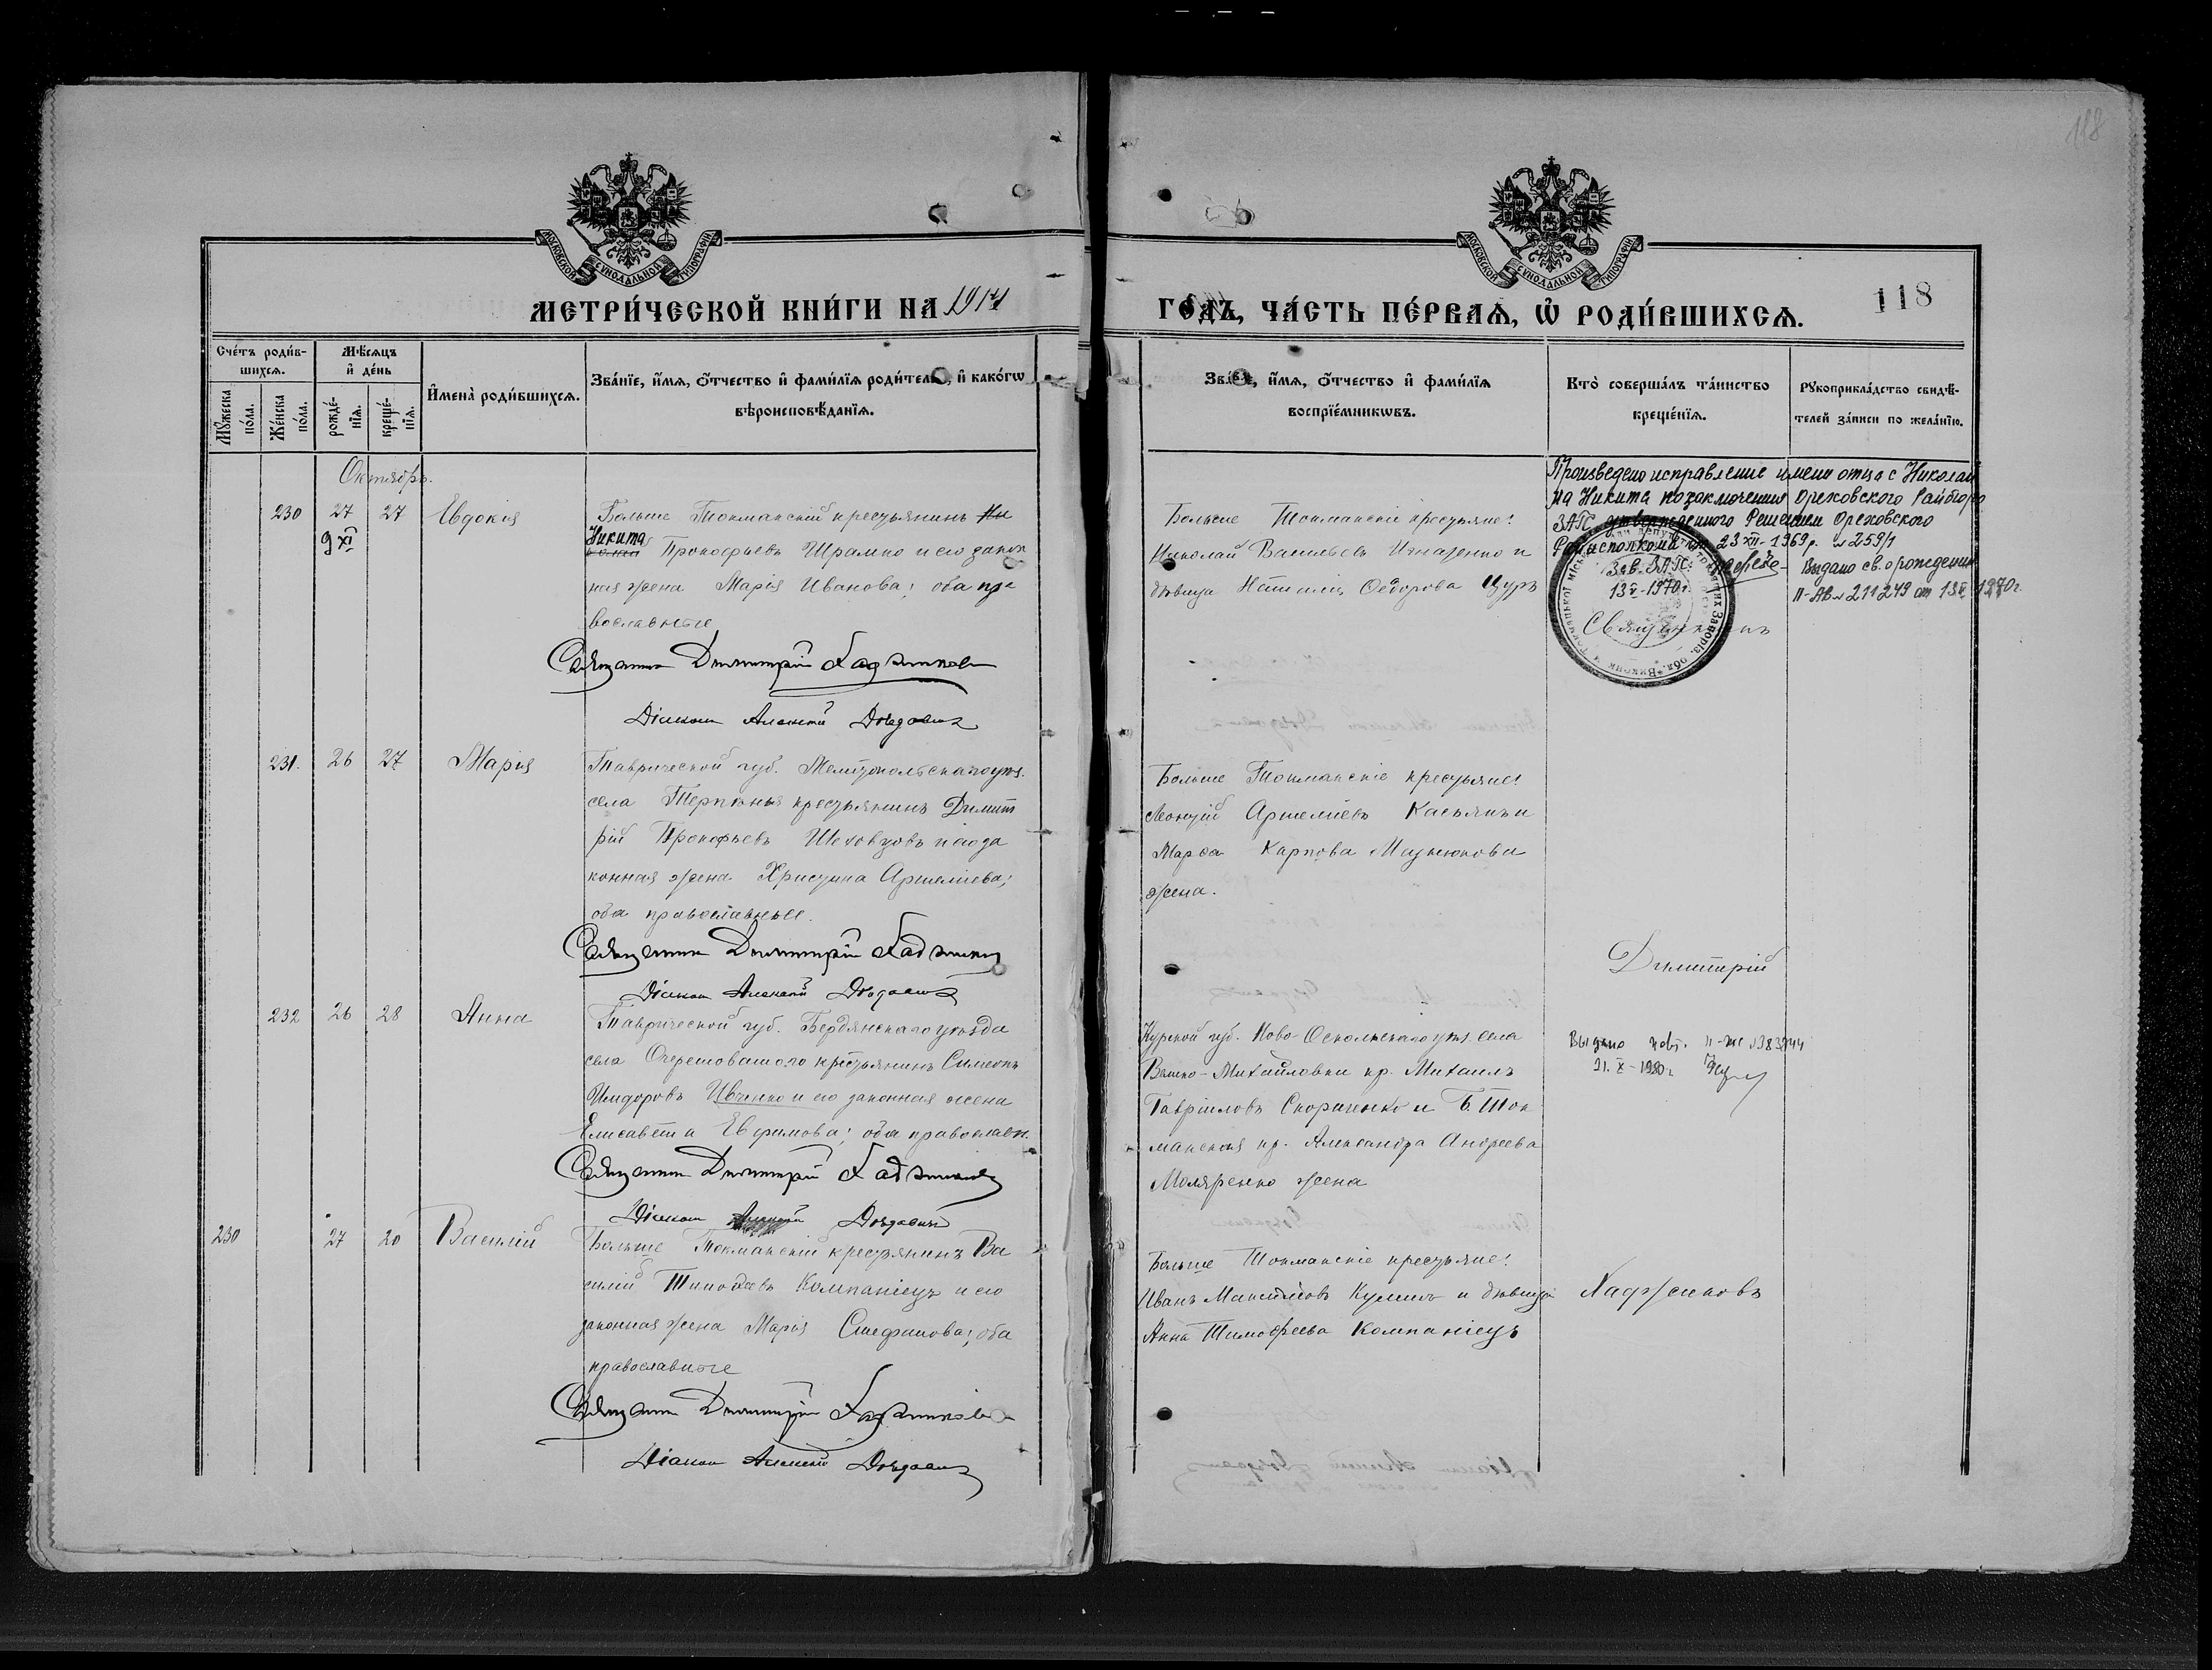 118
МОСКОВСКОЙ СѴНОДАЛЬНОЙ ТИПОГРАФІИ
МОСКОВСКОЙ СѴНОДАЛЬНОЙ ТИПОГРАФІИ
МЕТРИ́ЧЕСКОЙ КНИ́ГИ НА 1914
ГО́ДЪ, ЧА́СТЬ ПЕ́РВАѦ, Ѡ҆ РОДИ́ВШИХСѦ.
118
Сче́тъ роди́в-
шихсѧ.
Мѣ́сѧцъ
и҆ де́нь
Мꙋ́жеска
по́ла.
Же́нска
по́ла.
рожде́-
нїѧ.
креще́-
нїѧ.
И҆мена̀ роди́вшихсѧ.
Зва́нїе, и҆́мѧ, ѻ҆́тчество и҆ фами́лїѧ роди́телей, и҆ како́гѡ
вѣроисповѣ́данїѧ.
Зва́нїе, и҆́мѧ, ѻ҆́тчество и҆ фами́лїѧ
воспрїе́мникѡвъ.
Кто̀ соверша́лъ та́инство
креще́нїѧ.
Рꙋкоприкла́дство свидѣ́-
телей за́писи по жела́нїю.
Октябрь.
230 27 27 Евдокія
9 XI
Больше Токмакскій крестьянинъ Ни
Никита
колай Прокофьевъ Шрамко и его закон
ная жена Марія Иванова; оба пра
вославные
Священник Димитрій Хаджиновъ
Діакон Алексій Дозрасвич
Больше Токмакскіе крестьяне:
Николай Васильевъ Игнатенко и
дѣвица Наталія Ѳедорова Цуръ
Произведено исправление имени отца с Николай
на Никита по заключения Ореховского Райбюро
ЗАГС утвержденного Решением Ореховского
Райисполкома от 23 XII-1969 р. № 259/1
Зав. ЗАГС:
13 V-1970 г.
Выдано св. о рождении
II-АВ № 211249 от 13 V 1970 г.
Священникъ
231. 26 27 Марія
Таврической губ. Мелитопольскаго уѣз.
села Терпѣнья крестьянинъ Димит
рій Прокофьевъ Шеховцовъ и его за
конная жена Христина Аршеліева;
оба православные.
Священник Димитрій Хаджинов
Діакон Алексій
Больше Токмакскіе крестьяне:
Леонтій Аршеліевъ Касьянъ и
Марѳа Карпова Мазнюкова
жена.
Димитрій
232 26 28 Анна
Таврической губ. Бердянскаго уѣзда
села Очеретоватаго крестьянинъ Симеонъ
Исидоровъ Ивченко и его законная жена
Елисавета Евфимова; оба православн.
Священник Димитрій Хаджинов
Діакон Алексій
Курской губ. Ново-Оскольскаго уѣз. села
Велико-Михайловки кр. Михаилъ
Гавріиловъ Скориченко и Б. Ток
макская кр. Александра Андреева
Моляренко жена
Выдано повт.
21. X-1980 г.
230 27 28 Василій
Больше Токмакскій крестьянинъ Ва
силій Тимоѳеевъ Компаніецъ и его
законная жена Марія Стефанова; оба
православные
Священник Димитрій Хаджинов
Діакон Алексій
Больше Токмакскіе крестьяне:
Иванъ Максимовъ Кулишъ и дѣвица
Анна Тимоѳеева Компаніецъ
Хаджиновъ